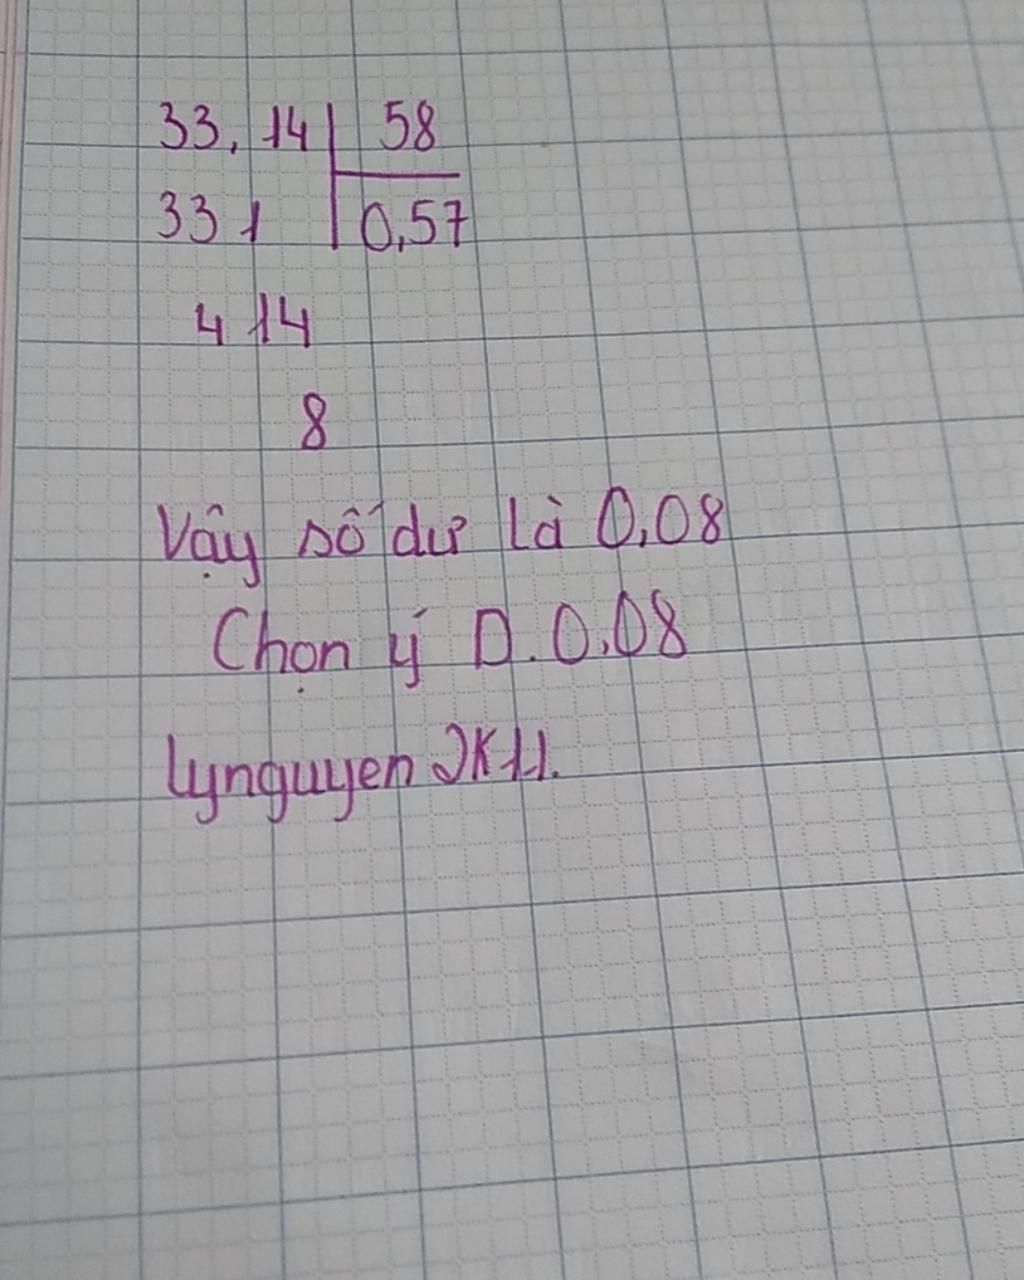 33,14 58
331 0,57
4 14
8
Vậy số dư là 0,08
Chọn ý D. 0,08
lynguyen JK11.